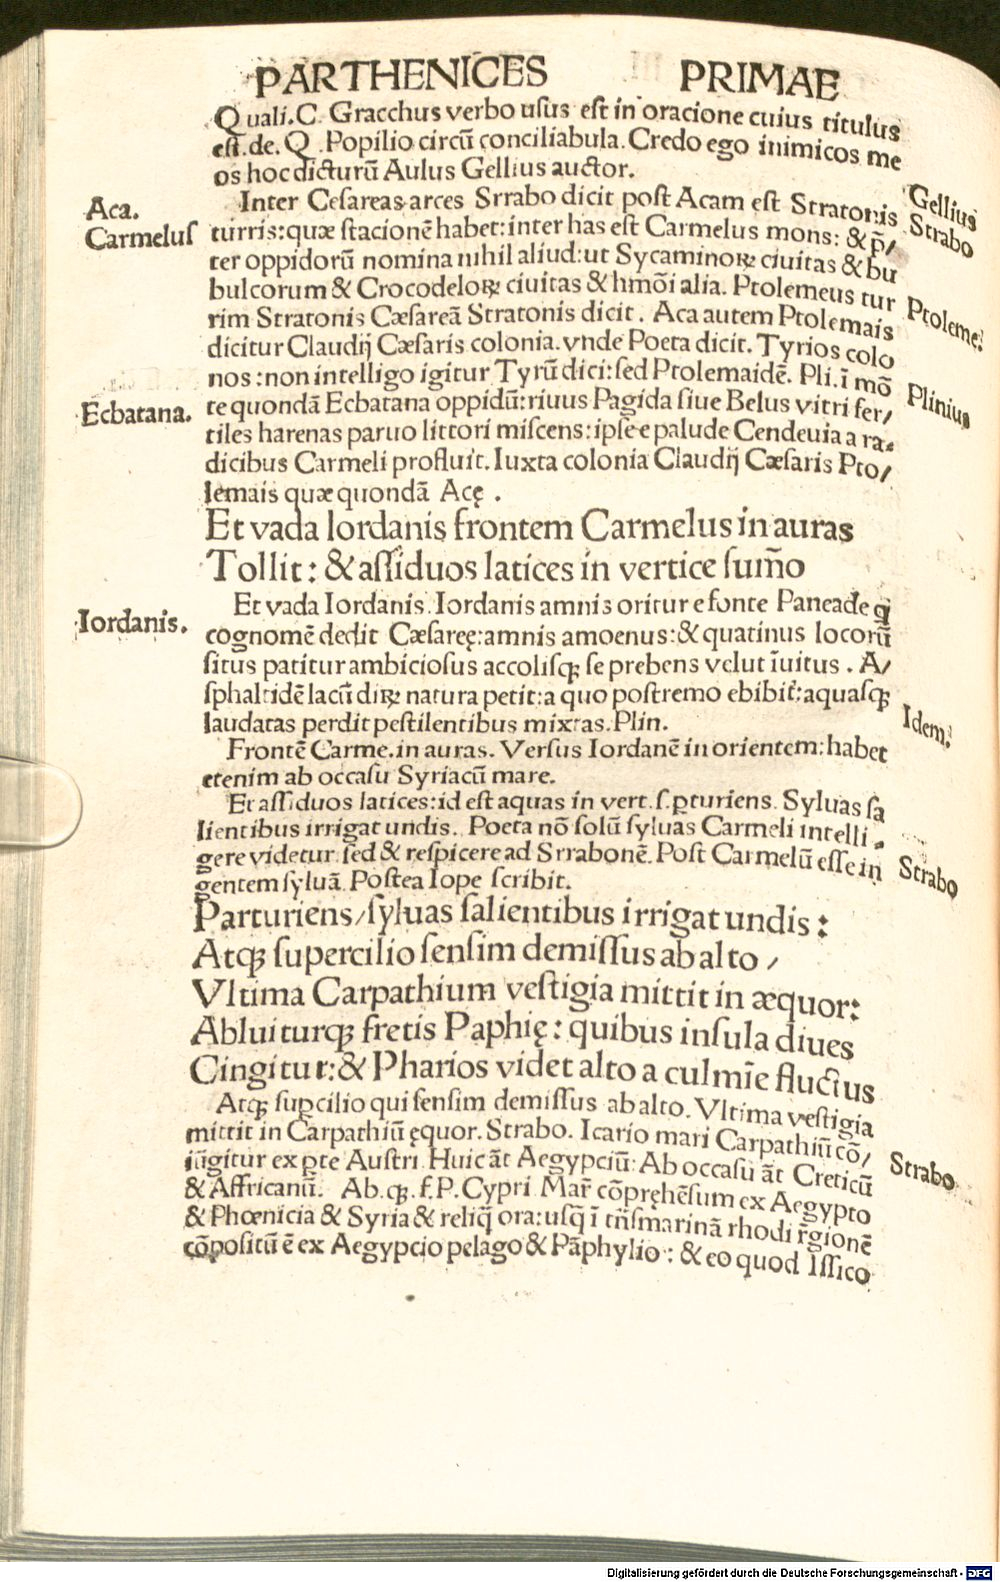 PARTHENICES PRIMAE
Quali.C. Gracchus verbo usus est in oracione cuius titulus
est.de.Q.Popilio circũ conciliabula.Credo ego inimicos me
os hoc dicturũ Aulus Gellius auctor.
Gellius
Inter Cesareas arces Srrabo dicit post Acam est Stratonis
Strabo
Aca.
Carmelus
turris:quæ stacionẽ habet:inter has est Carmelus mons:& p̃/
ter oppidorũ nomina nihil aliud:ut Sycaminoꝝ ciuitas & bu
bulcorum & Crocodeloꝝ ciuitas & hmõi alia. Ptolemeus tur
Ptoleme?
rim Stratonis Cæsareã Stratonis dicit. Aca autem Ptolemais
dicitur Claudij Cæsaris colonia.vnde Poeta dicit. Tyrios colo
nos:non intelligo igitur Tyrũ dici:sed Ptolemaidẽ. Pli.ĩ mõ
Plinius
Ecbatana.
te quondã Ecbatana oppidũ:riuus Pagida siue Belus vitri fer/
tiles harenas paruo littori miscens:ipse e palude Cendeuia a ra
dicibus Carmeli profluit.Iuxta colonia Claudij Cæsaris Pto/
lemais quæ quondã Acę .
Et vada Iordanis frontem Carmelus in auras
Tollit:& assiduos latices in vertice sum̃o
Iordanis.
Et vada Iordanis.Iordanis amnis oritur e fonte Paneade q̇
cognomẽ dedit Cæsareę:amnis amoenus:& quatinus locorũ
situs patitur ambiciosus accolisqꝫ se prebens velut ĩuitus. A/
sphaltidẽ lacũ diꝝ natura petit:a quo postremo ebibit̃:aquasqꝫ
Idem?
laudatas perdit pestilentibus mixtas.Plin.
Frontẽ Carme.in auras. Versus Iordanẽ in orientem:habet
etenim ab occasu Syriacũ mare.
Et assiduos latices:id est aquas in vert.s.ꝑturiens. Syluas sa
lientibus irrigat undis. Poeta nõ solũ syluas Carmeli intelli
gere videtur sed & respicere ad Srrabonẽ.Post Carmelũ esse in
Strabo
gentem syluã.Postea Iope scribit.
Parturiens/syluas salientibus irrigat undis:
Atqꝫ supercilio sensim demissus ab alto/
Vltima Carpathium vestigia mittit in æquor:
Abluiturqꝫ fretis Paphię: quibus insula diues
Cingitur:& Pharios videt alto a culmĩe fluctus
Atqꝫ suꝑcilio qui sensim demissus ab alto. Vltima vestigia
mittit in Carpathiũ ęquor. Strabo. Icario mari Carpathiũ cõ/
Strabo
iũgitur ex ꝑte Austri.Huic ãt Aegypciũ:Ab occasu ãt Creticũ
& Affricanũ. Ab.qꝫ.f.P.Cypri Mar̃ cõpręhẽsum ex Aegypto
& Phœnicia & Syria & reliq̃ ora:usqꝫ ĩ trñsmarinã rhodi r̃gionẽ
cõpositũ ẽ ex Aegypcio pelago & Pãphylio:& eo quod Issico
Digitalisierung gefördert durch die Deutsche Forschungsgemeinschaft - DFG